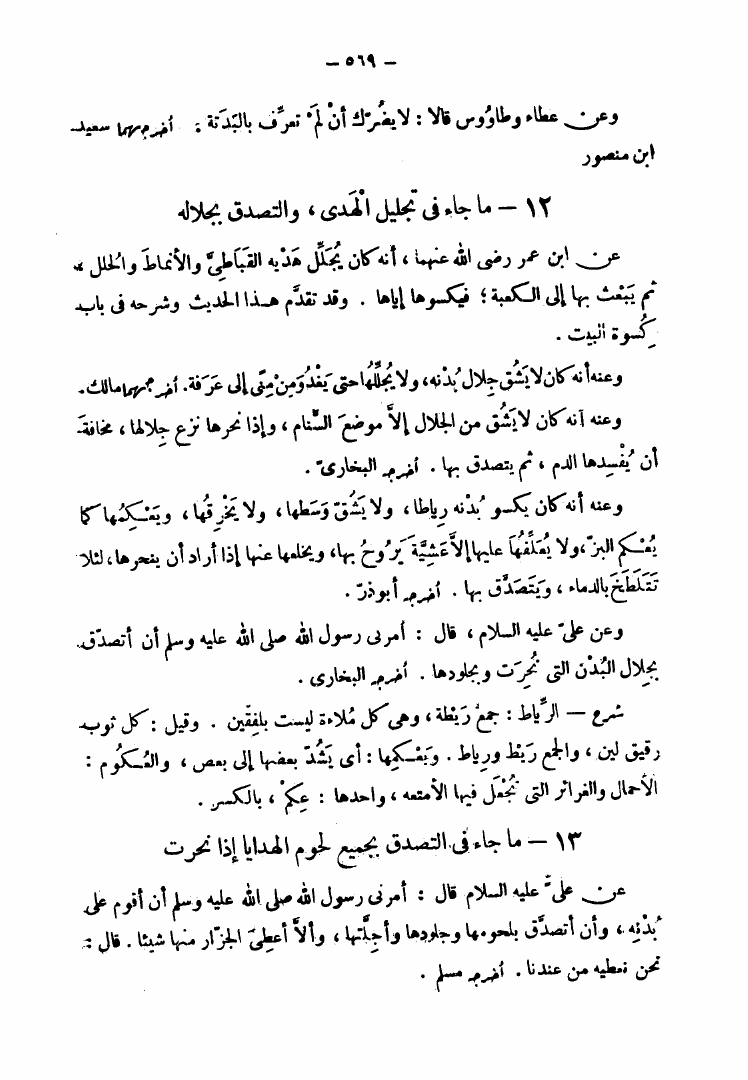 — ٥٦٩ —
وعن عطاء وطاوُوس قالا : لا يضُرّك أنْ لَمْ تعرِّف بالبَدَنة ؛ أخرجهما سعيد
ابن منصور
١٢ — ما جاء فى تجليل الْهَدى ، والتصدق بجلاله
عن ابن عمر رضى الله عنهما ، أنه كان يُجَلِّل هَدْيه القَبَاطِىَّ والأنماطَ والحُلل ،
ثم يَبْعَث بها إلى الكعبة ؛ فيكسوها إياها . وقد تقدَّم هذا الحديث وشرحه فى باب
كِسُوة البيت .
وعنه أنه كان لا يَشُق جِلال بُدْنه ، ولا يُجلِّلُها حتى يَغْدُوَ مِنْ مِنًى إلى عَرَفة . أخرجهما مالك .
وعنه أنه كان لا يَشُق من الجلال إلاَّ موضعَ السَّنام ، وإذا نحرها نزع جِلالها ، مخافةَ
أن يُفْسِدها الدم ، ثم يتصدق بها . أخرجه البخارىّ .
وعنه أنه كان يكسو بُدْنه رِياطا ، ولا يَشُقّ وَسَطها ، ولا يَخْرِقُها ، ويَعْكِمُها كما
يُعْكم البزّ ، ولا يُعَلِّقُهَا عليها إلاَّ عَشِيَّةَ يَرُوحُ بها ، ويخلعها عنها إذا أراد أن ينحرها ، لئلا
تَتَلَطَّخَ بالدماء ، وَيَتَصَدَّق بها . أخرجه أبو ذرّ .
وعن علىّ عليه السلام ، قال : أمرنى رسول الله صلى الله عليه وسلم أن أتصدّق
بِجِلال البُدْن التى نُحِرَت وبجلودها . أخرجه البخارى .
شرح — الرِّياط : جمعُ رَيْطة ، وهى كل مُلاءة ليست بلِفِقين . وقيل : كل ثوب
رقيق لين ، والجمع رَيْط ورِياط . وَيَعْكمِها : أى يَشُدّ بعضها إلى بعض ، والعُكُوم :
الأحمال والغرائر التى تُجْعَل فيها الأمتعه ، واحدها : عِكمْ ، بالكسر .
١٣ — ما جاء فى التصدق بجميع لحوم الهدايا إذا نحرت
عن علىّ عليه السلام قال : أمرنى رسول الله صلى الله عليه وسلم أن أقوم على
بُدْنِه ، وأن أتصدَّق بلحومها وجلودها وأجِلَّتها ، وألاَّ أعطِىَ الجزّار منها شيئا . قال :
نحن نعطيه من عندنا . أخرجه مسلم .